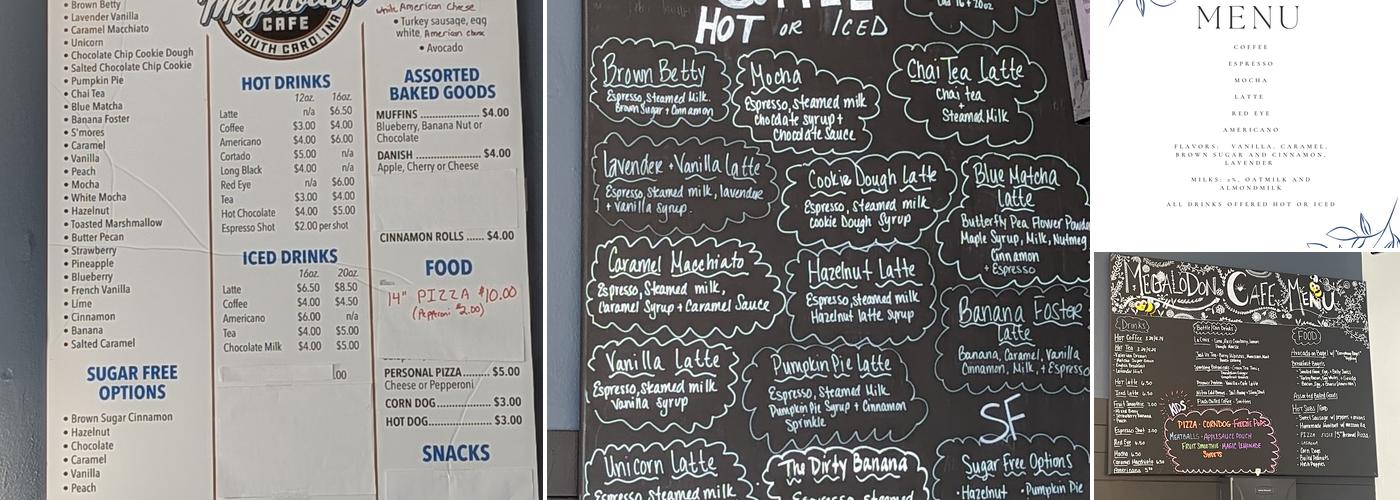 • Brown Betty
• Lavender Vanilla
• Caramel Macchiato
• Unicorn
• Chocolate Chip Cookie Dough
• Salted Chocolate Chip Cookie
• Pumpkin Pie
• Chai Tea
• Blue Matcha
• Banana Foster
• S'mores
• Caramel
• Vanilla
• Peach
• Mocha
• White Mocha
• Hazelnut
• Toasted Marshmallow
• Butter Pecan
• Strawberry
• Pineapple
• Blueberry
• French Vanilla
• Lime
• Cinnamon
• Banana
• Salted Caramel
SUGAR FREE
OPTIONS
• Brown Sugar Cinnamon
• Hazelnut
• Chocolate
• Caramel
• Vanilla
• Peach
Megalodon
CAFE
SOUTH CAROLINA
HOT DRINKS
12oz. 16oz.
Latte n/a $6.50
Coffee $3.00 $4.00
Americano $4.00 $6.00
Cortado $5.00 n/a
Long Black $4.00 n/a
Red Eye n/a $6.00
Tea $3.00 $4.00
Hot Chocolate $4.00 $5.00
Espresso Shot $2.00 per shot
ICED DRINKS
16oz. 20oz.
Latte $6.50 $8.50
Coffee $4.00 $4.50
Americano $6.00 n/a
Tea $4.00 $5.00
Chocolate Milk $4.00 $5.00
.00
white, American cheese
• Turkey sausage, egg
white, American cheese
• Avocado
ASSORTED
BAKED GOODS
MUFFINS $4.00
Blueberry, Banana Nut or
Chocolate
DANISH $4.00
Apple, Cherry or Cheese
CINNAMON ROLLS ...... $4.00
FOOD
14" PIZZA $10.00
(Pepperoni $2.00)
PERSONAL PIZZA $5.00
Cheese or Pepperoni
CORN DOG $3.00
HOT DOG $3.00
SNACKS
HOT OR ICED
16 + 20oz
Brown Betty
Espresso, Steamed Milk,
Brown Sugar + Cinnamon
Mocha
Espresso, steamed milk
chocolate syrup +
Chocolate Sauce
Chai Tea Latte
Chai tea
+
Steamed Milk
Lavender + Vanilla Latte
Espresso, Steamed milk, lavendre
+ Vanilla syrup.
Cookie Dough Latte
Espresso, Steamed milk
Cookie Dough Syrup
Blue Matcha
Latte
Butterfly Pea Flower Powder
Maple Syrup, Milk, Nutmeg
Cinnamon
+ Espresso
Caramel Macchiato
Espresso, Steamed milk,
Caramel Syrup + Caramel Sauce
Hazelnut Latte
Espresso, steamed milk
Hazelnut latte Syrup
Banana Foster
Latte
Banana, Caramel, Vanilla
Cinnamon, Milk, + Espresso
Vanilla Latte
Espresso, steamed milk
Vanilla Syrup
Pumpkin Pie Latte
Espresso, Steamed Milk
Pumpkin Pie Syrup + Cinnamon
Sprinkle
SF
Unicorn Latte
Espresso, Steamed milk
The Dirty Banana
Espresso, steamed
Sugar Free Options
• Hazelnut • Pumpkin Pie
MENU
COFFEE
ESPRESSO
MOCHA
LATTE
RED EYE
AMERICANO
FLAVORS: VANILLA, CARAMEL,
BROWN SUGAR AND CINNAMON,
LAVENDER
MILKS: 2%, OATMILK AND
ALMONDMILK
ALL DRINKS OFFERED HOT OR ICED
MEGALODON CAFE MENU
Drinks
Hot Coffee
Hot Tea
Hot Latte 6.50
Iced Latte 6.50
Fruit Smoothie 7.00
Espresso Shot 2.00
Red Eye 6.50
Mocha 6.50
Caramel Macchiato 6.50
Americano
FOOD
Avocado on Bagel
Breakfast Bagels
Assorted Baked Goods
Hot Subs
PIZZA
• Corn Dogs
KIDS
PIZZA • CORNDOG • FREEZIE POPS
MEATBALLS • APPLESAUCE POUCH
FRUIT SMOOTHIE • MAGIC LEMONADE